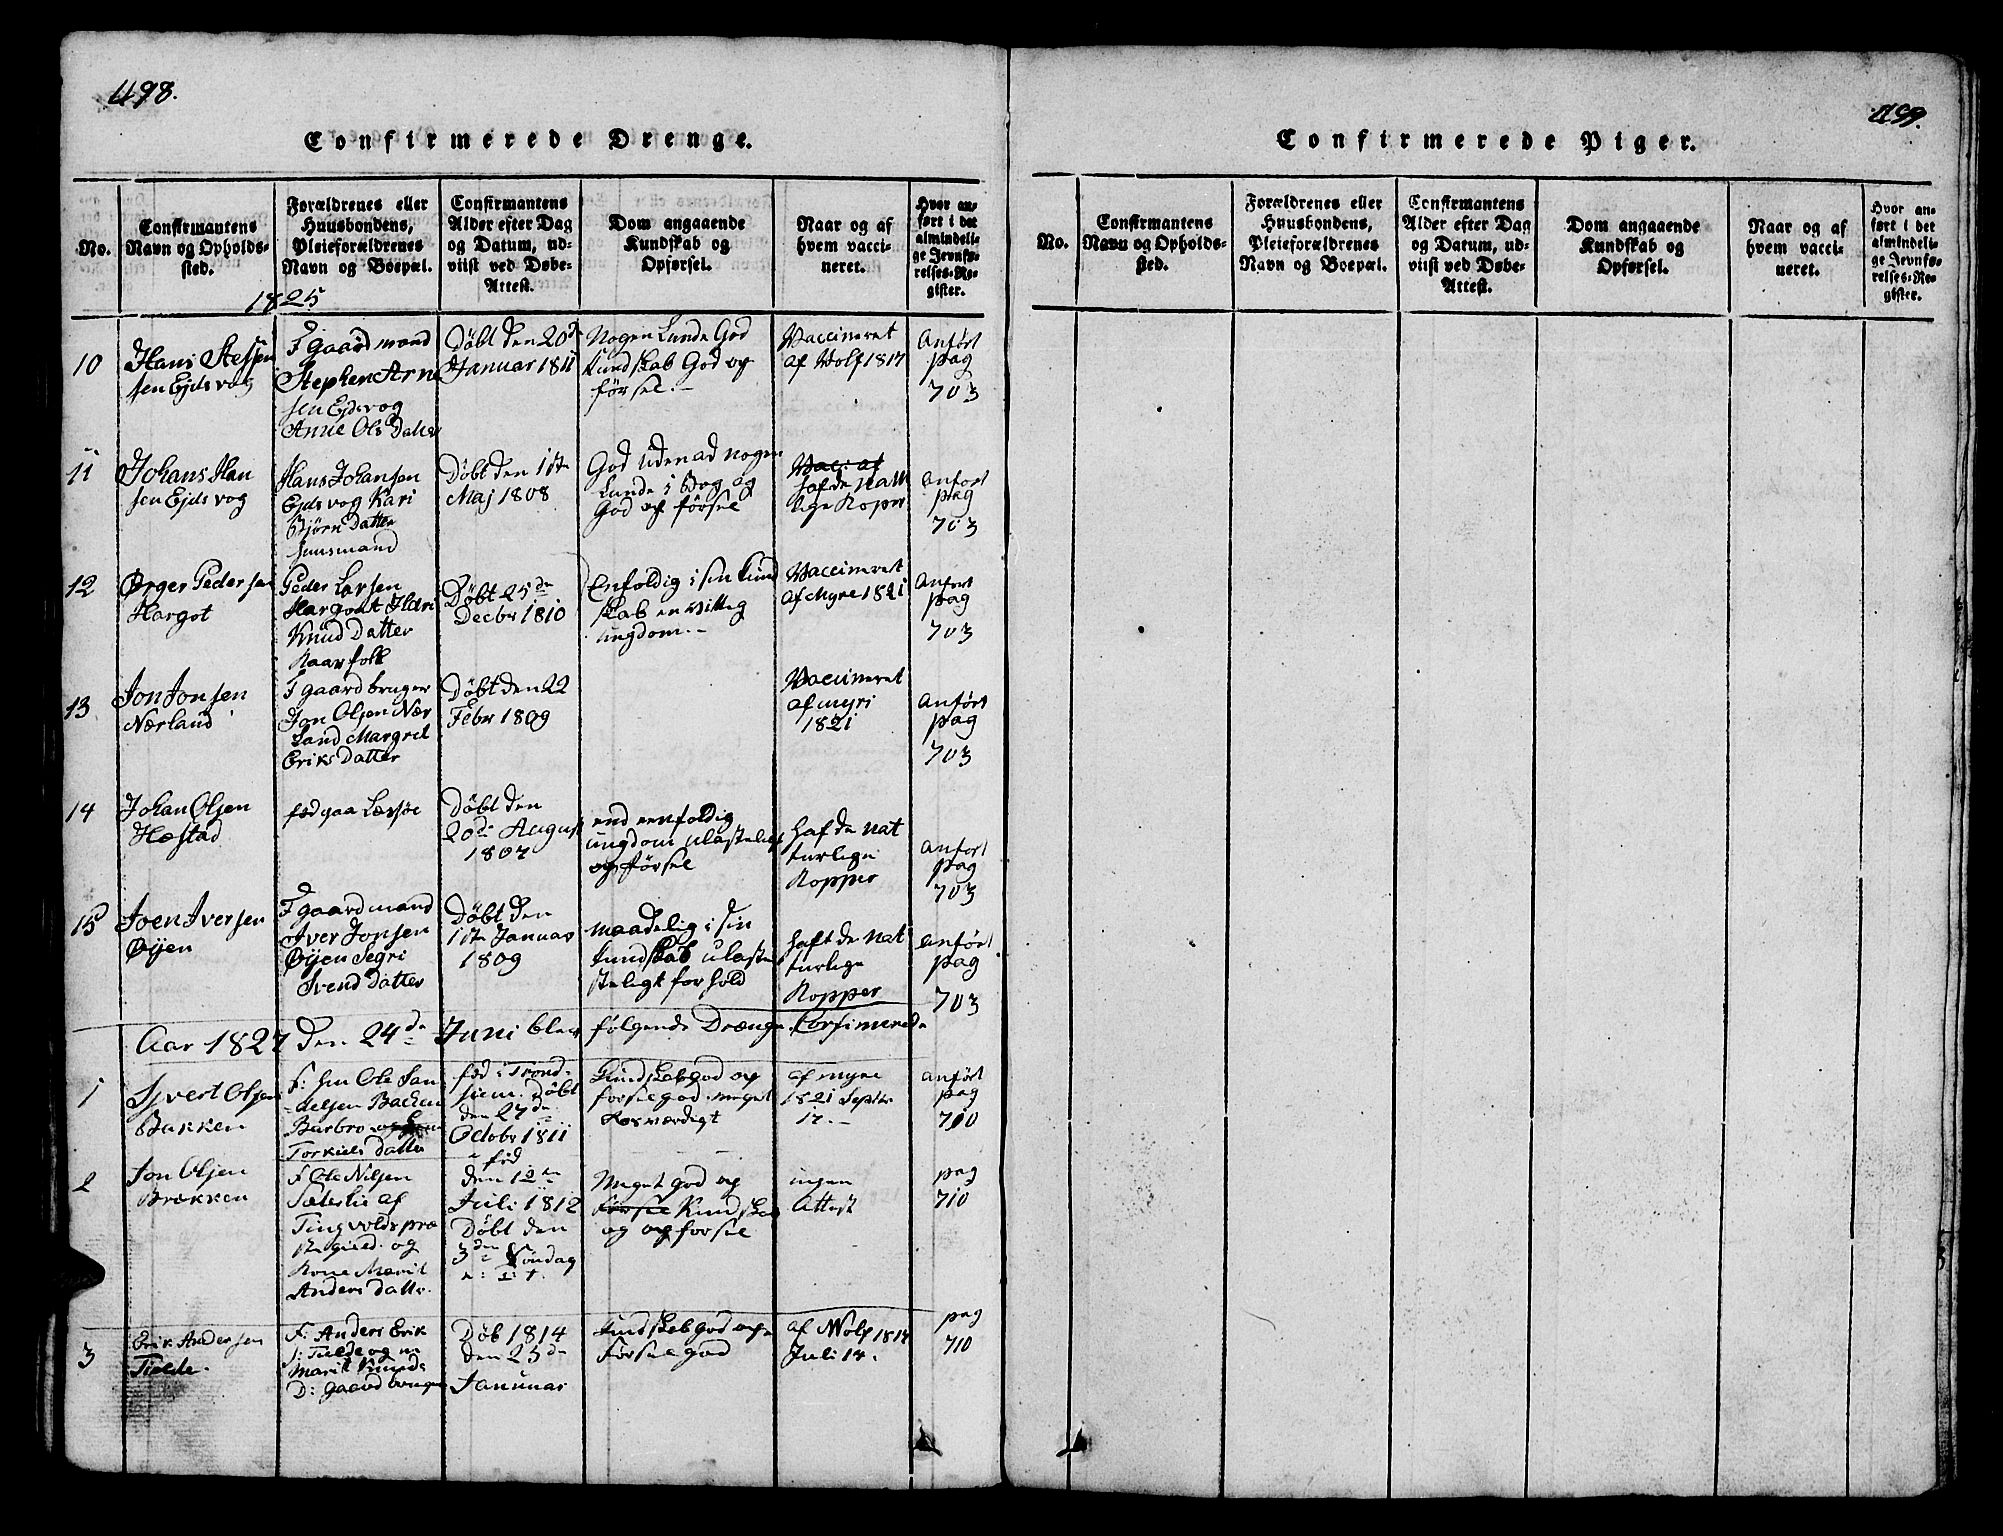 498.
Confirmerede Drenge.
No.
Confirmantens
Navn og Opholds-
sted.
Forældrenes eller
Huusbondens,
Pleieforældrenes
Navn og Boepæl.
Confirmantens
Alder efter Dag
og Datum, ud-
viist ved Døbe-
Attest.
Dom angaaende
Kundskab og
Opførsel.
Naar og af
hvem vacci-
neret.
Hvor an-
ført i det
almindeli-
ge Jevnfø-
relses-Re-
gister.
1825
10
Hans Steffen
sen Ejdsvog
F gaardmand
Stephen Arne
sen Ejdsvog
Anne Ols Datter
Døbt den 20de
Januar 1811
Nogen Lunde God
Kundskab God op
førsel.-
Vaccineret
af Wolf 1817
Anført
pag
703
11
Johans Han
sen Ejdsvog
Hans Johansen
Ejdsvog Kari
Bjørn Datter
huusmand
Døbt den 1ste
Maj 1808
God Udenad nogen
Lunde i Bog og
God opførsel
Vaci af
hafde natt
lige Kopr
anfort
pag
703
12
Ørger Pedersen
Hargot
Peder Larsen
Hargout Ildri
Knud Datter
Kaarfolk
Døbt 25de
Decbr 1810
Enfoldig i sin Kund
skab en vittig
ungdom.-
Vaccineret
af Myre 1821
Anfort
pag
703
13
Jon Jonsen
Nærland
F gaardbruger
Jon Olsen Nær
land Margret
Eriks Datter
Døbt den 22
Febr 1809
Vaccineret
af myri
1821
anført
pag
703
14
Johan Olsen
Hæstad
fød paa
Døbt den
20de August
1807
end eenfoldig
ungdom ulastelig
opførsel
hafde nat
turlige
Kopper
anfort
pag
703
15
Joen Iversen
Øyen
F gaardmand
Iver Jonsen
Øyen Segri
Svend Datter
Døbt den
1ste Januar
1809
maadelig i sin
kundskab ulaste
steligt forhold
haft de nat
turlige
Kopper
anført
pag
703
Aar 1827 den 24de Juni blev følgende Drænge Corfimerede
1
Sjvert Olsen
Bakken
F: hr Ole San
delsen Backen
Barbro
Torkiels datter
fød i Trond-
hiem. Døbt
den 27de
Octobr 1811
Kundskab god op
forsel god. meget
Rosværdigt
af myre
1821 Septbr
17.-
anført
pag
710
2
Jon Olsen
Brækken
F. Ole Nilsen
Sæterlie af
Tingvolds præ
stegield. og
Kone Marit
Anders datter.
fød
den 12te
Juli 1812
Døbt den
3de Søndag
Meget god og
førsel Kundskab
og opforsel
ingen
Attest
pag
710
3
Erik Andersen
Tielde.
F: Anders Erik
s: Tielde og
Marit Knuds
D: gaardbruger
Døb 1814
den 25de
Januuar
Kundskab god op
Førsel god
af Wolf 1814
Juli 14.
pag
710
499.
Confirmerede Piger.
No.
Confirmantens
Navn og Opholds-
sted.
Forældrenes eller
Huusbondens,
Pleieforældrenes
Navn og Boepæl.
Confirmantens
Alder efter Dag
og Datum, ud-
viist ved Døbe-
Attest.
Dom angaaende
Kundskab og
Opførsel.
Naar og af
hvem vacci-
neret.
Hvor an-
ført i det
almindeli-
ge Jevnfø-
relses-Re-
gister.